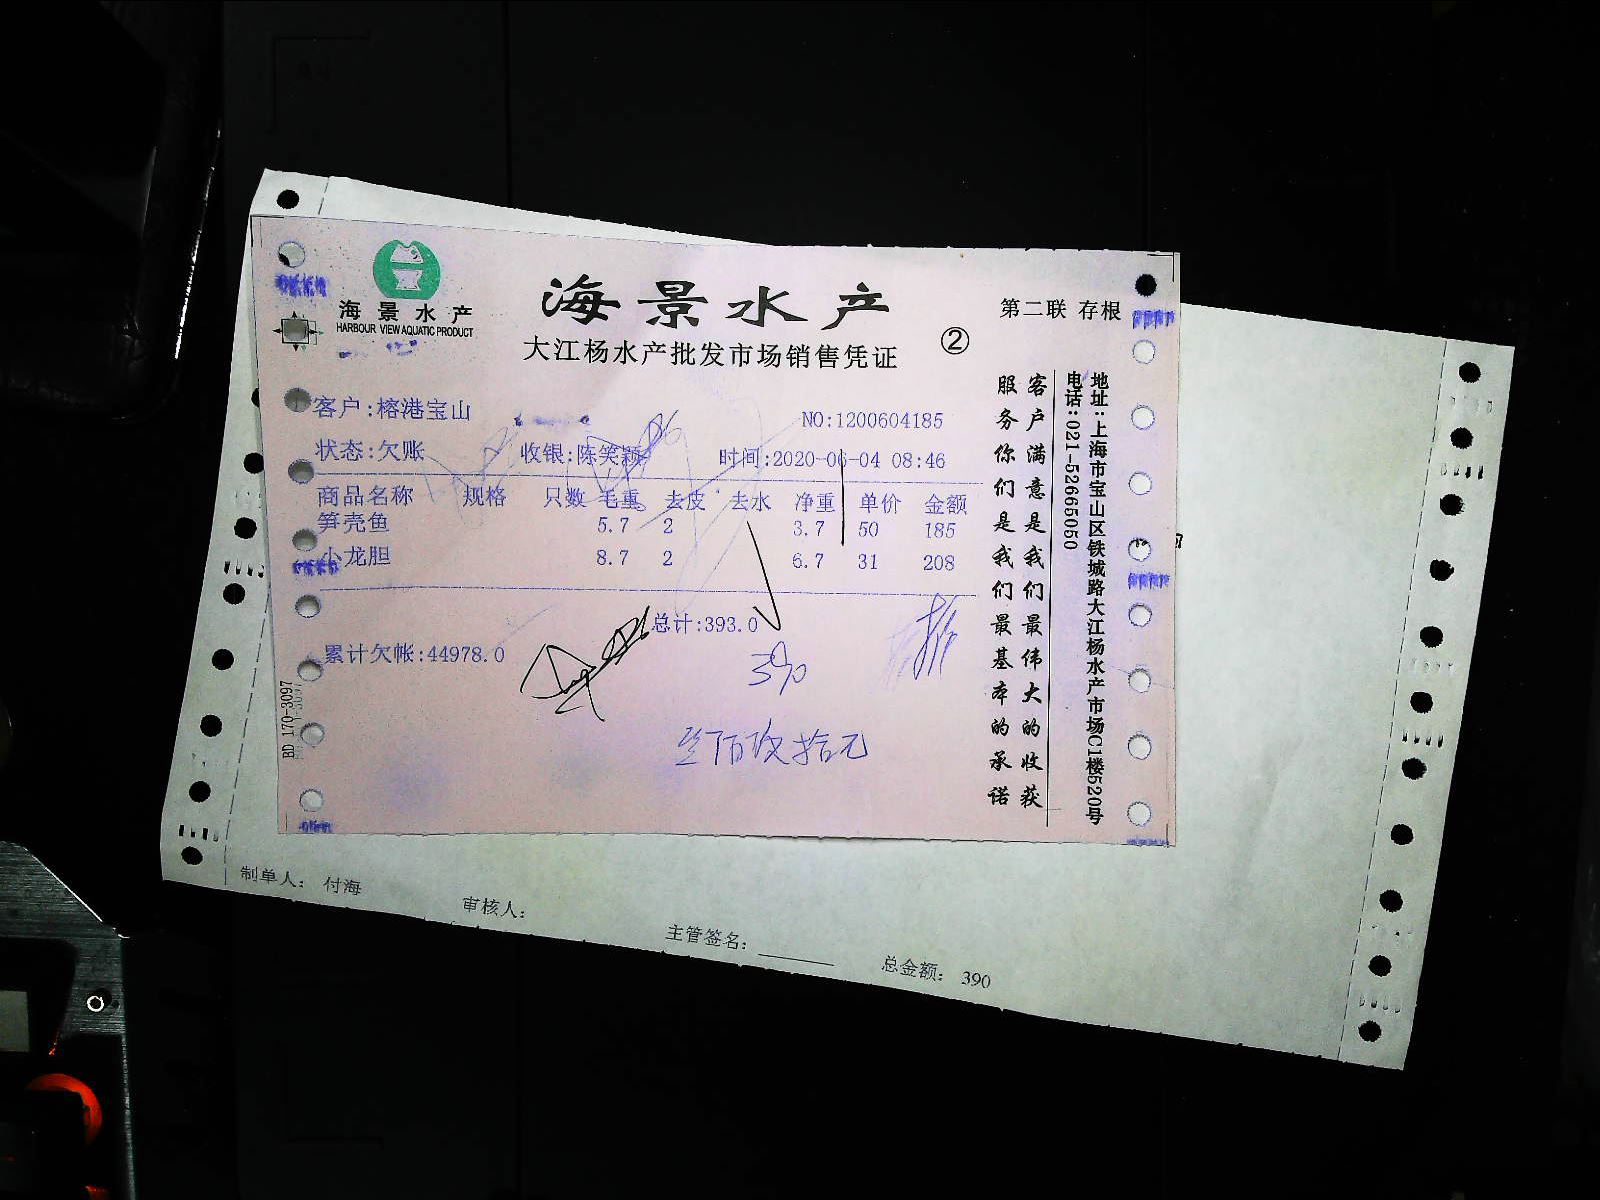 海景水产
HARBOUR VIEW AQUATIC PRODUCT
海景水产
大江杨水产批发市场销售凭证
②
第二联 存根
客户:榕港宝山
NO:1200604185
状态:欠账 收银:陈笑颖 时间:2020-06-04 08:46
商品名称 规格 只数 毛重 去皮 去水 净重 单价 金额
笋壳鱼 5.7 2 3.7 50 185
小龙胆 8.7 2 6.7 31 208
总计:393.0
累计欠帐:44978.0
390
叁佰玖拾元
BD 170-3097
客户满意是我们最伟大的收获
服务你们是我们最基本的承诺
地址:上海市宝山区铁城路大江杨水产市场C1楼520号
电话:021-52665050
制单人: 付海
审核人:
主管签名:
总金额: 390